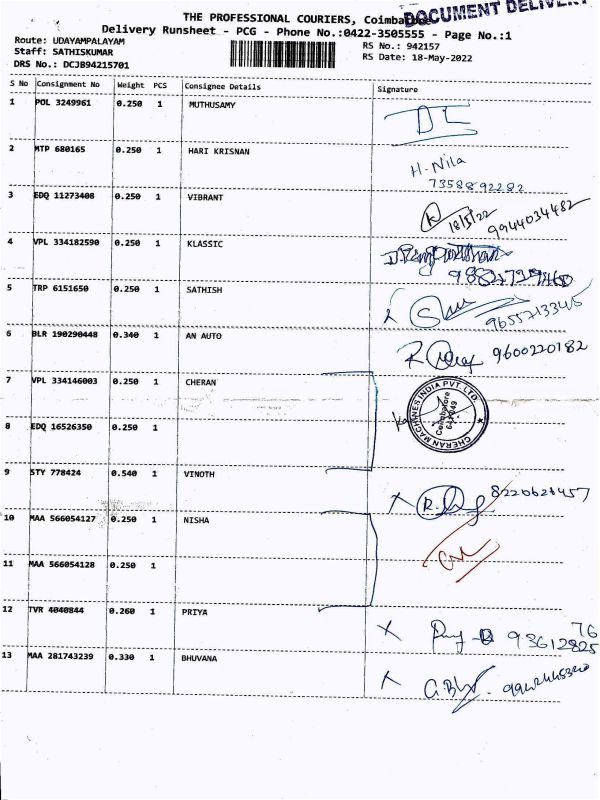 DOCUMENT DELIVERY
THE PROFESSIONAL COURIERS, Coimbatore
Delivery Runsheet - PCG - Phone No.:0422-3505555 - Page No.:1
Route: UDAYAMPALAYAM
Staff: SATHISKUMAR
DRS No.: DCJB94215701
RS No.: 942157
RS Date: 18-May-2022
S No Consignment No Weight PCS Consignee Details Signature
1 POL 3249961 0.250 1 MUTHUSAMY
2 MTP 680165 0.250 1 HARI KRISNAN
H. Nila
7358892282
3 EDQ 11273408 0.250 1 VIBRANT
18/5/22 9944034482
4 VPL 334182590 0.250 1 KLASSIC
5 TRP 6151650 0.250 1 SATHISH
6 BLR 190290448 0.340 1 AN AUTO
9600220182
7 VPL 334146003 0.250 1 CHERAN
CHERAN MACHINES INDIA PVT. LTD.
Coimbatore
8 EDQ 16526350 0.250 1
9 STY 778424 0.540 1 VINOTH
10 MAA 566054127 0.250 1 NISHA
11 MAA 566054128 0.250 1
12 TVR 4040844 0.260 1 PRIYA
13 MAA 281743239 0.330 1 BHUVANA